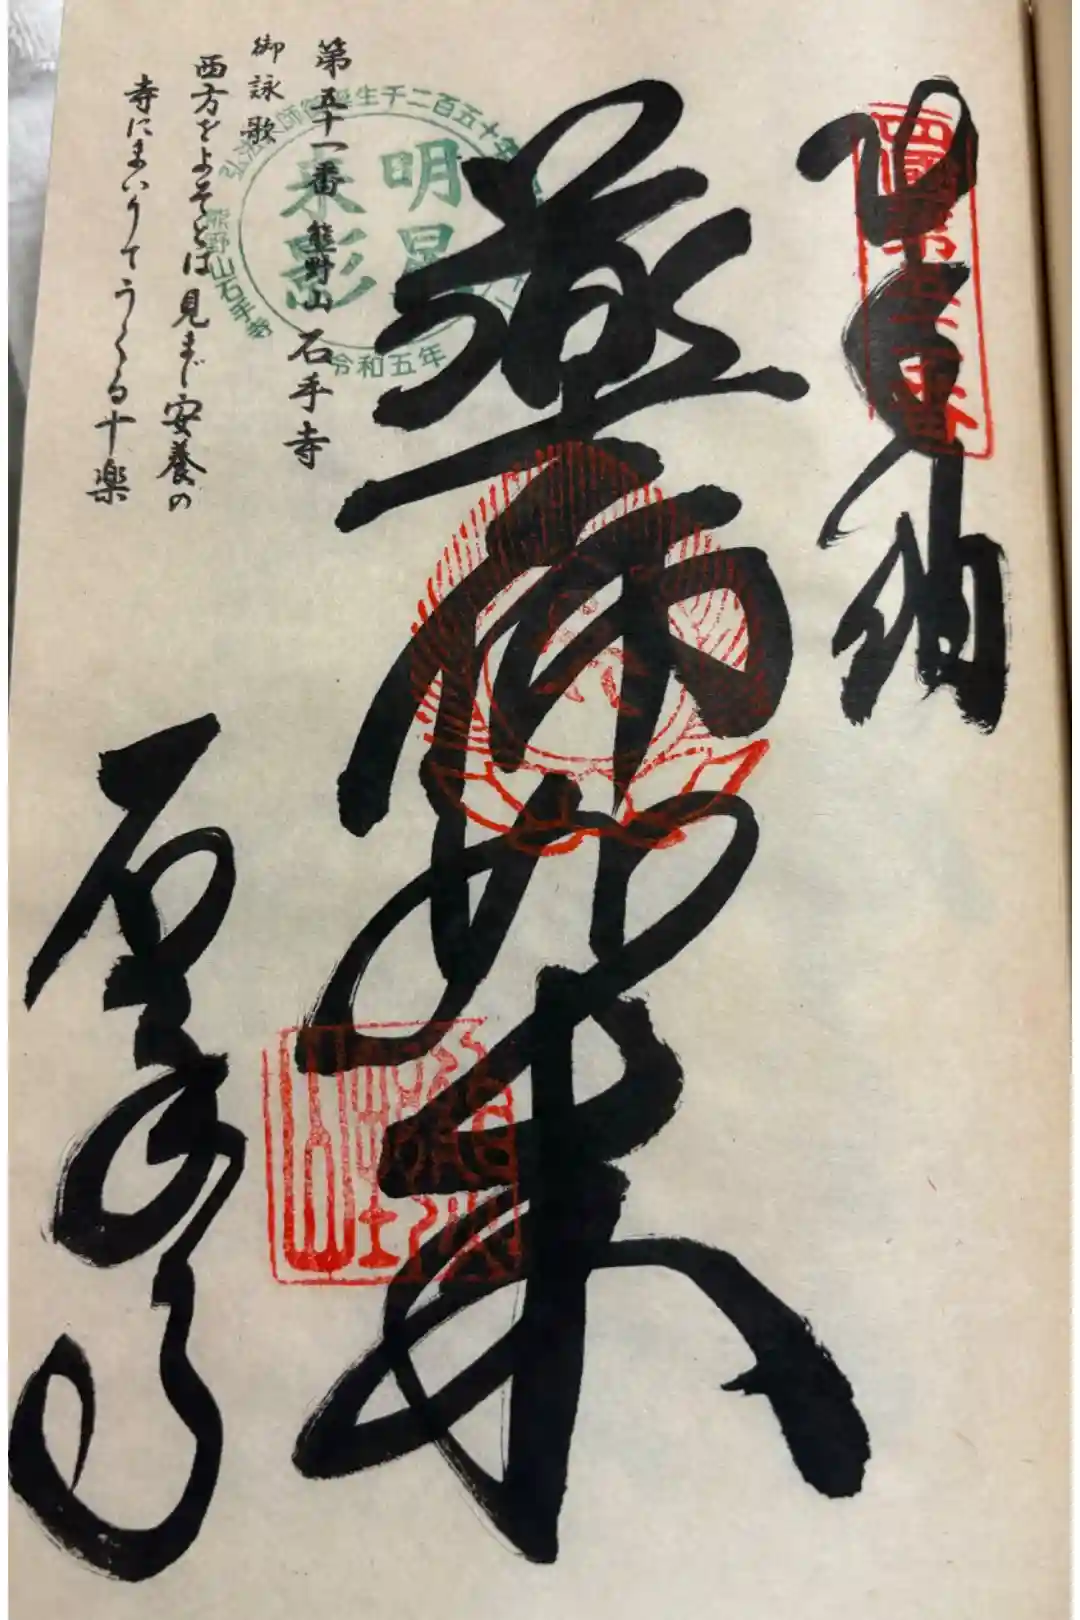 奉納
四國第五十一番
薬師如来
石手寺
第五十一番 熊野山 石手寺
御詠歌
西方をよそとは見まじ安養の
寺にまいりてうくる十楽
弘法大師御誕生千二百五十年
明星来影
熊野山石手寺
令和五年